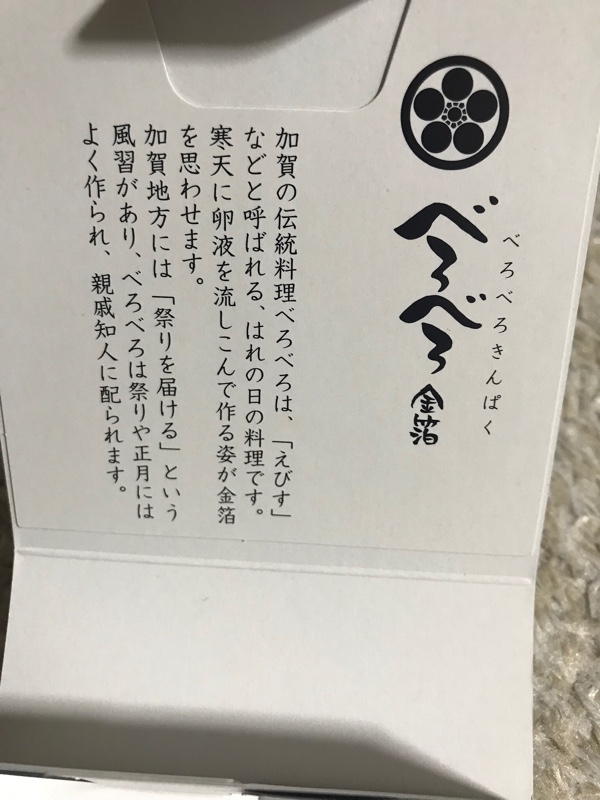 べろべろきんぱく
べろべろ金箔
加賀の伝統料理べろべろは、「えびす」
などと呼ばれる、はれの日の料理です。
寒天に卵液を流しこんで作る姿が金箔
を思わせます。
加賀地方には「祭りを届ける」という
風習があり、べろべろは祭りや正月には
よく作られ、親戚知人に配られます。